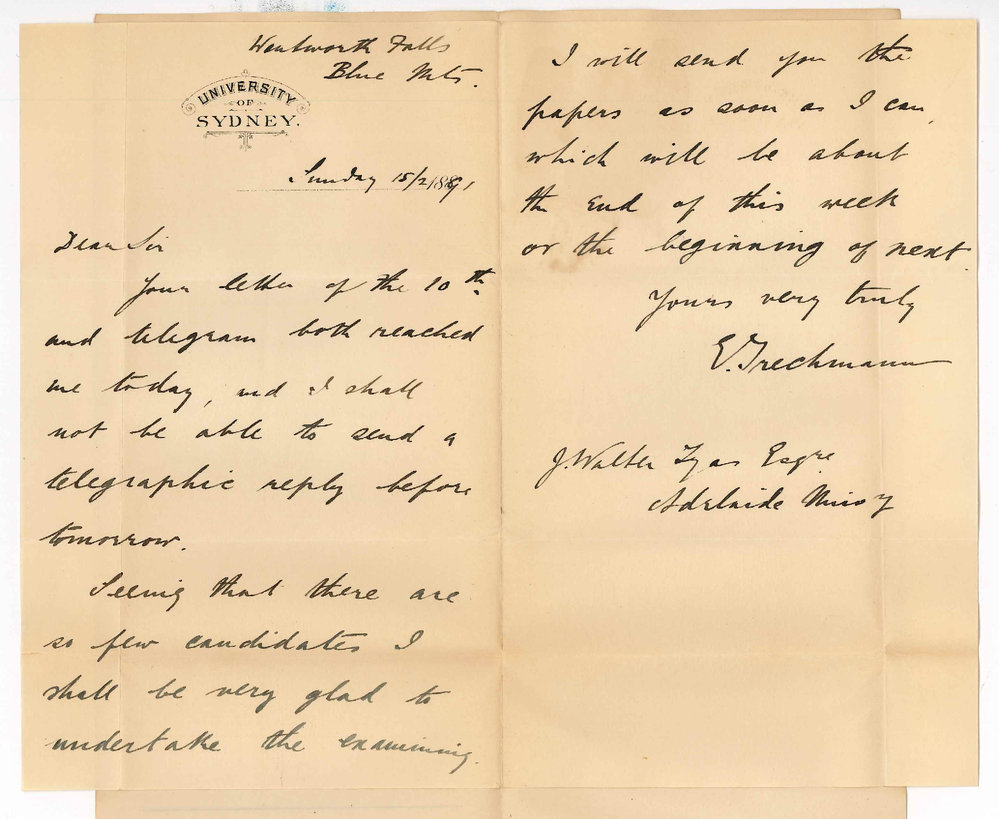 Wentworth Falls
Blue Mts.
UNIVERSITY
OF
SYDNEY.
Sunday 15/2/1891
Dear Sir
Your letter of the 10th
and telegram both reached
me today, and I shall
not be able to send a
telegraphic reply before
tomorrow.
Seeing that there are
so few candidates I
shall be very glad to
undertake the examining.
I will send you the
papers as soon as I can,
which will be about
the end of this week
or the beginning of next.
Yours very truly
E. Trechmann
J. Walter Tyas Esqre.
Adelaide Univy